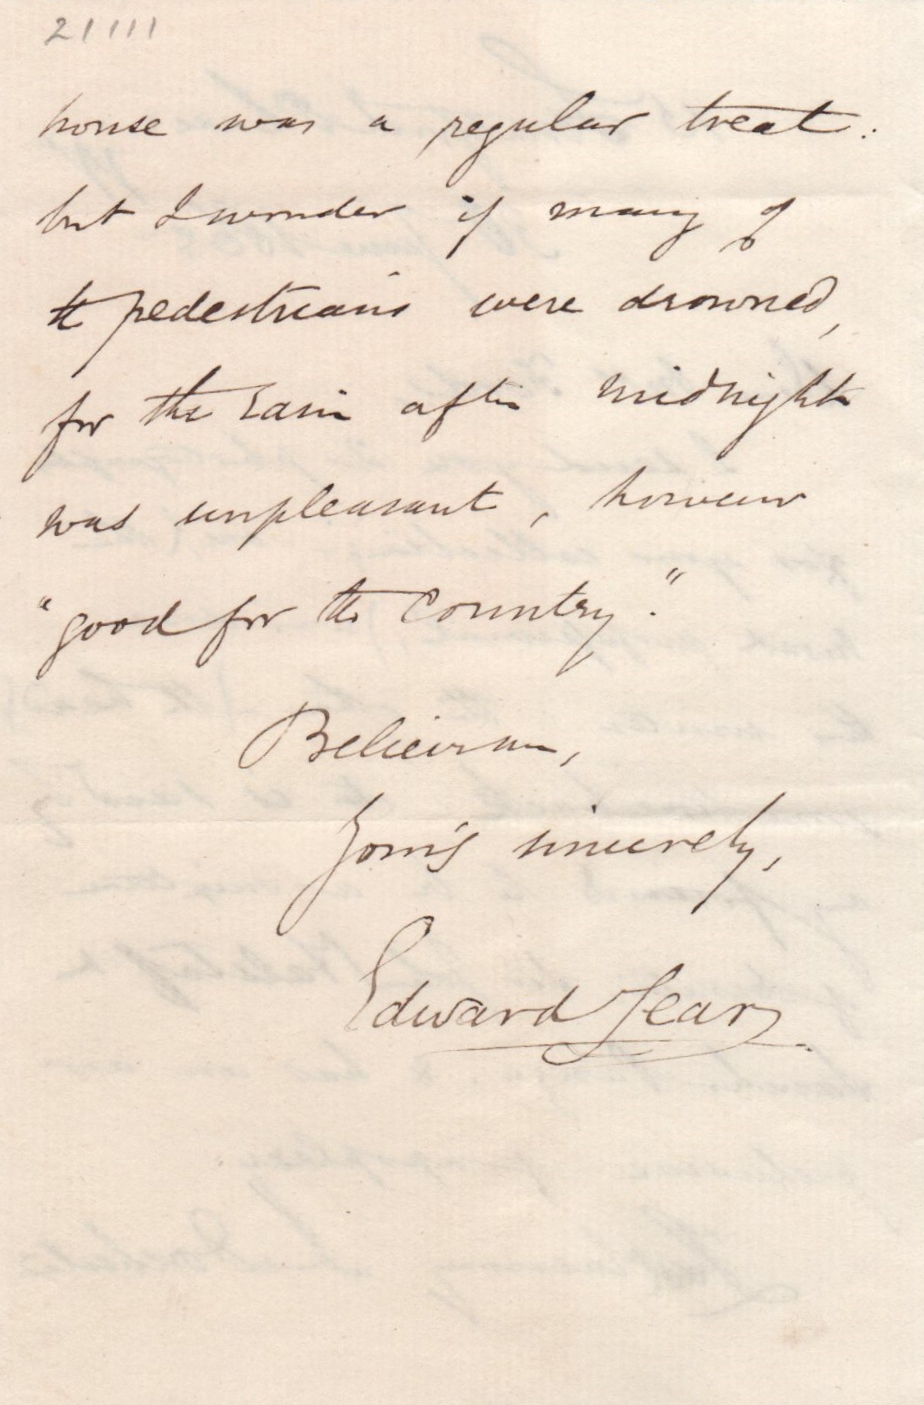 21111
house was a regular treat:
but I wonder if many of
the pedestrians were drowned,
for the rain after midnight
was unpleasant, however
"good for the country."
Believe me,
Yours sincerely,
Edward Lear